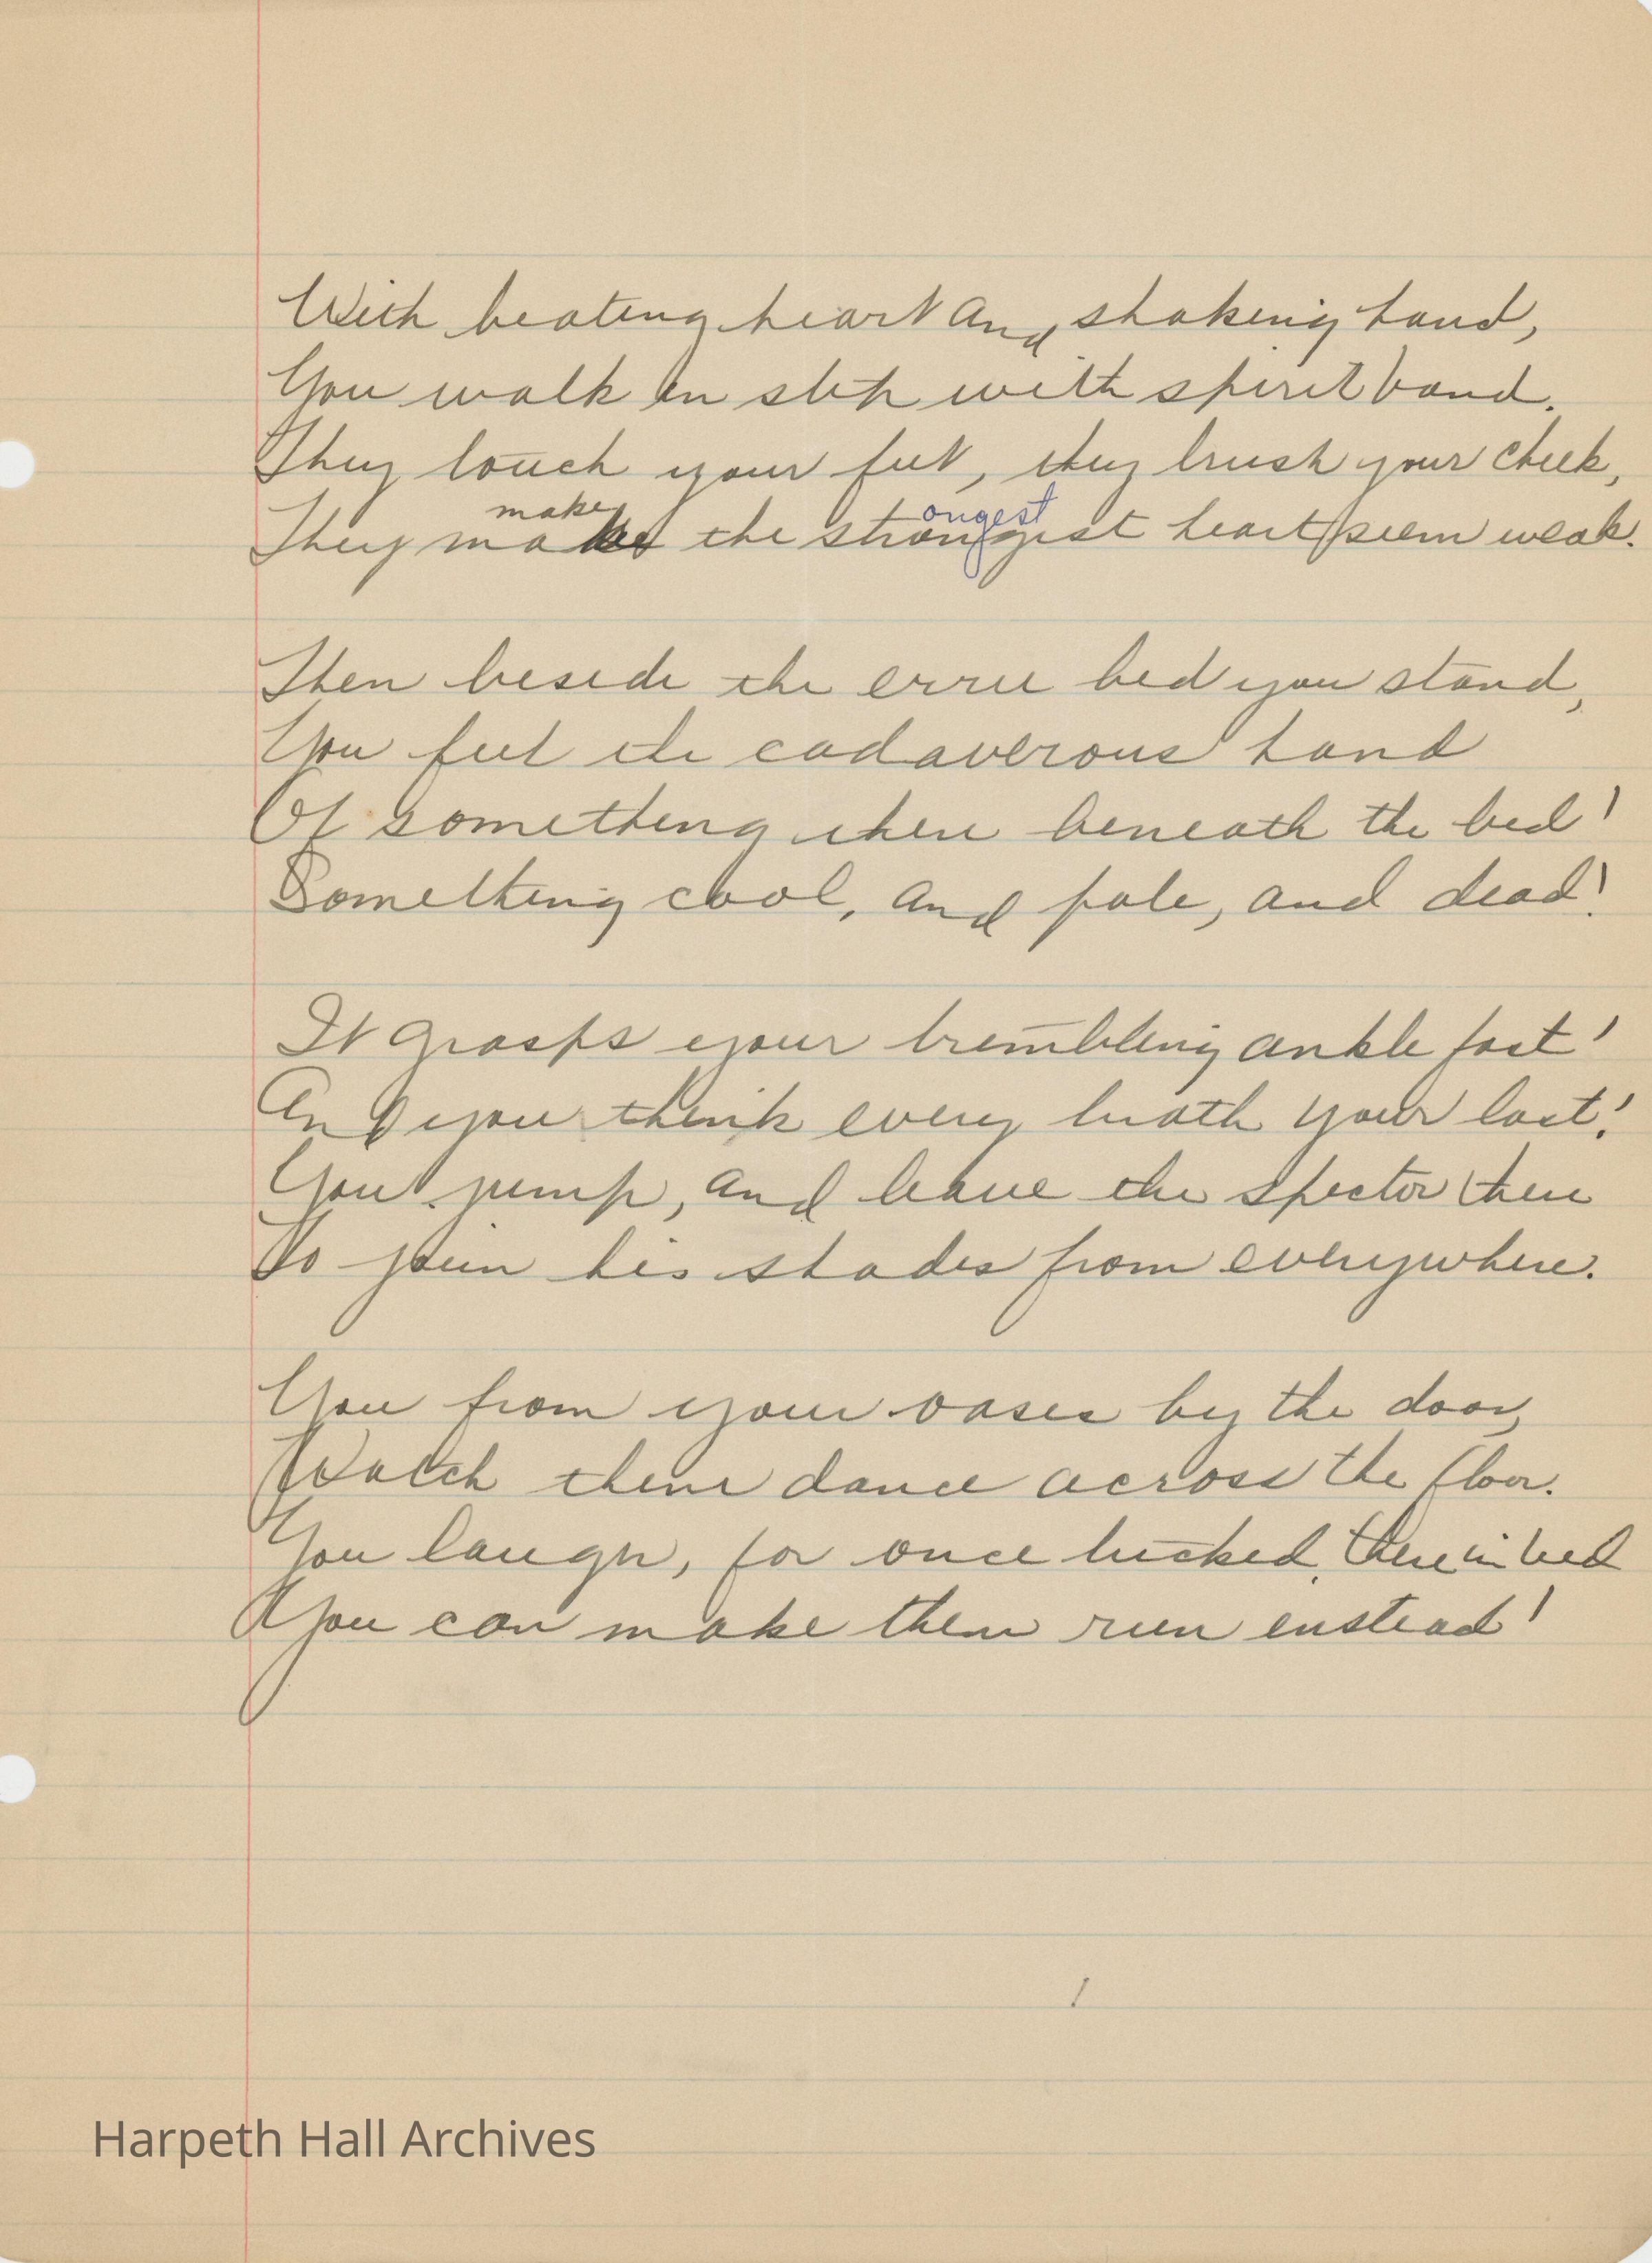 With beating heart and shaking hand,
You walk in step with spirit band.
They touch your feet, they brush your cheek,
make ongest
They makes the strongest heart seem weak.
Then beside the errie bed you stand,
You feel the cadaverous hand
Of something there beneath the bed!
Something cool, and pale, and dead!
It grasps your trembling ankle fast!
And you think every breath your last!
You jump, and leave the specter there
To join his shades from everywhere.
You from your oases by the door,
Watch them dance across the floor.
You laugh, for once tucked there in bed
You can make them run instead!
Harpeth Hall Archives